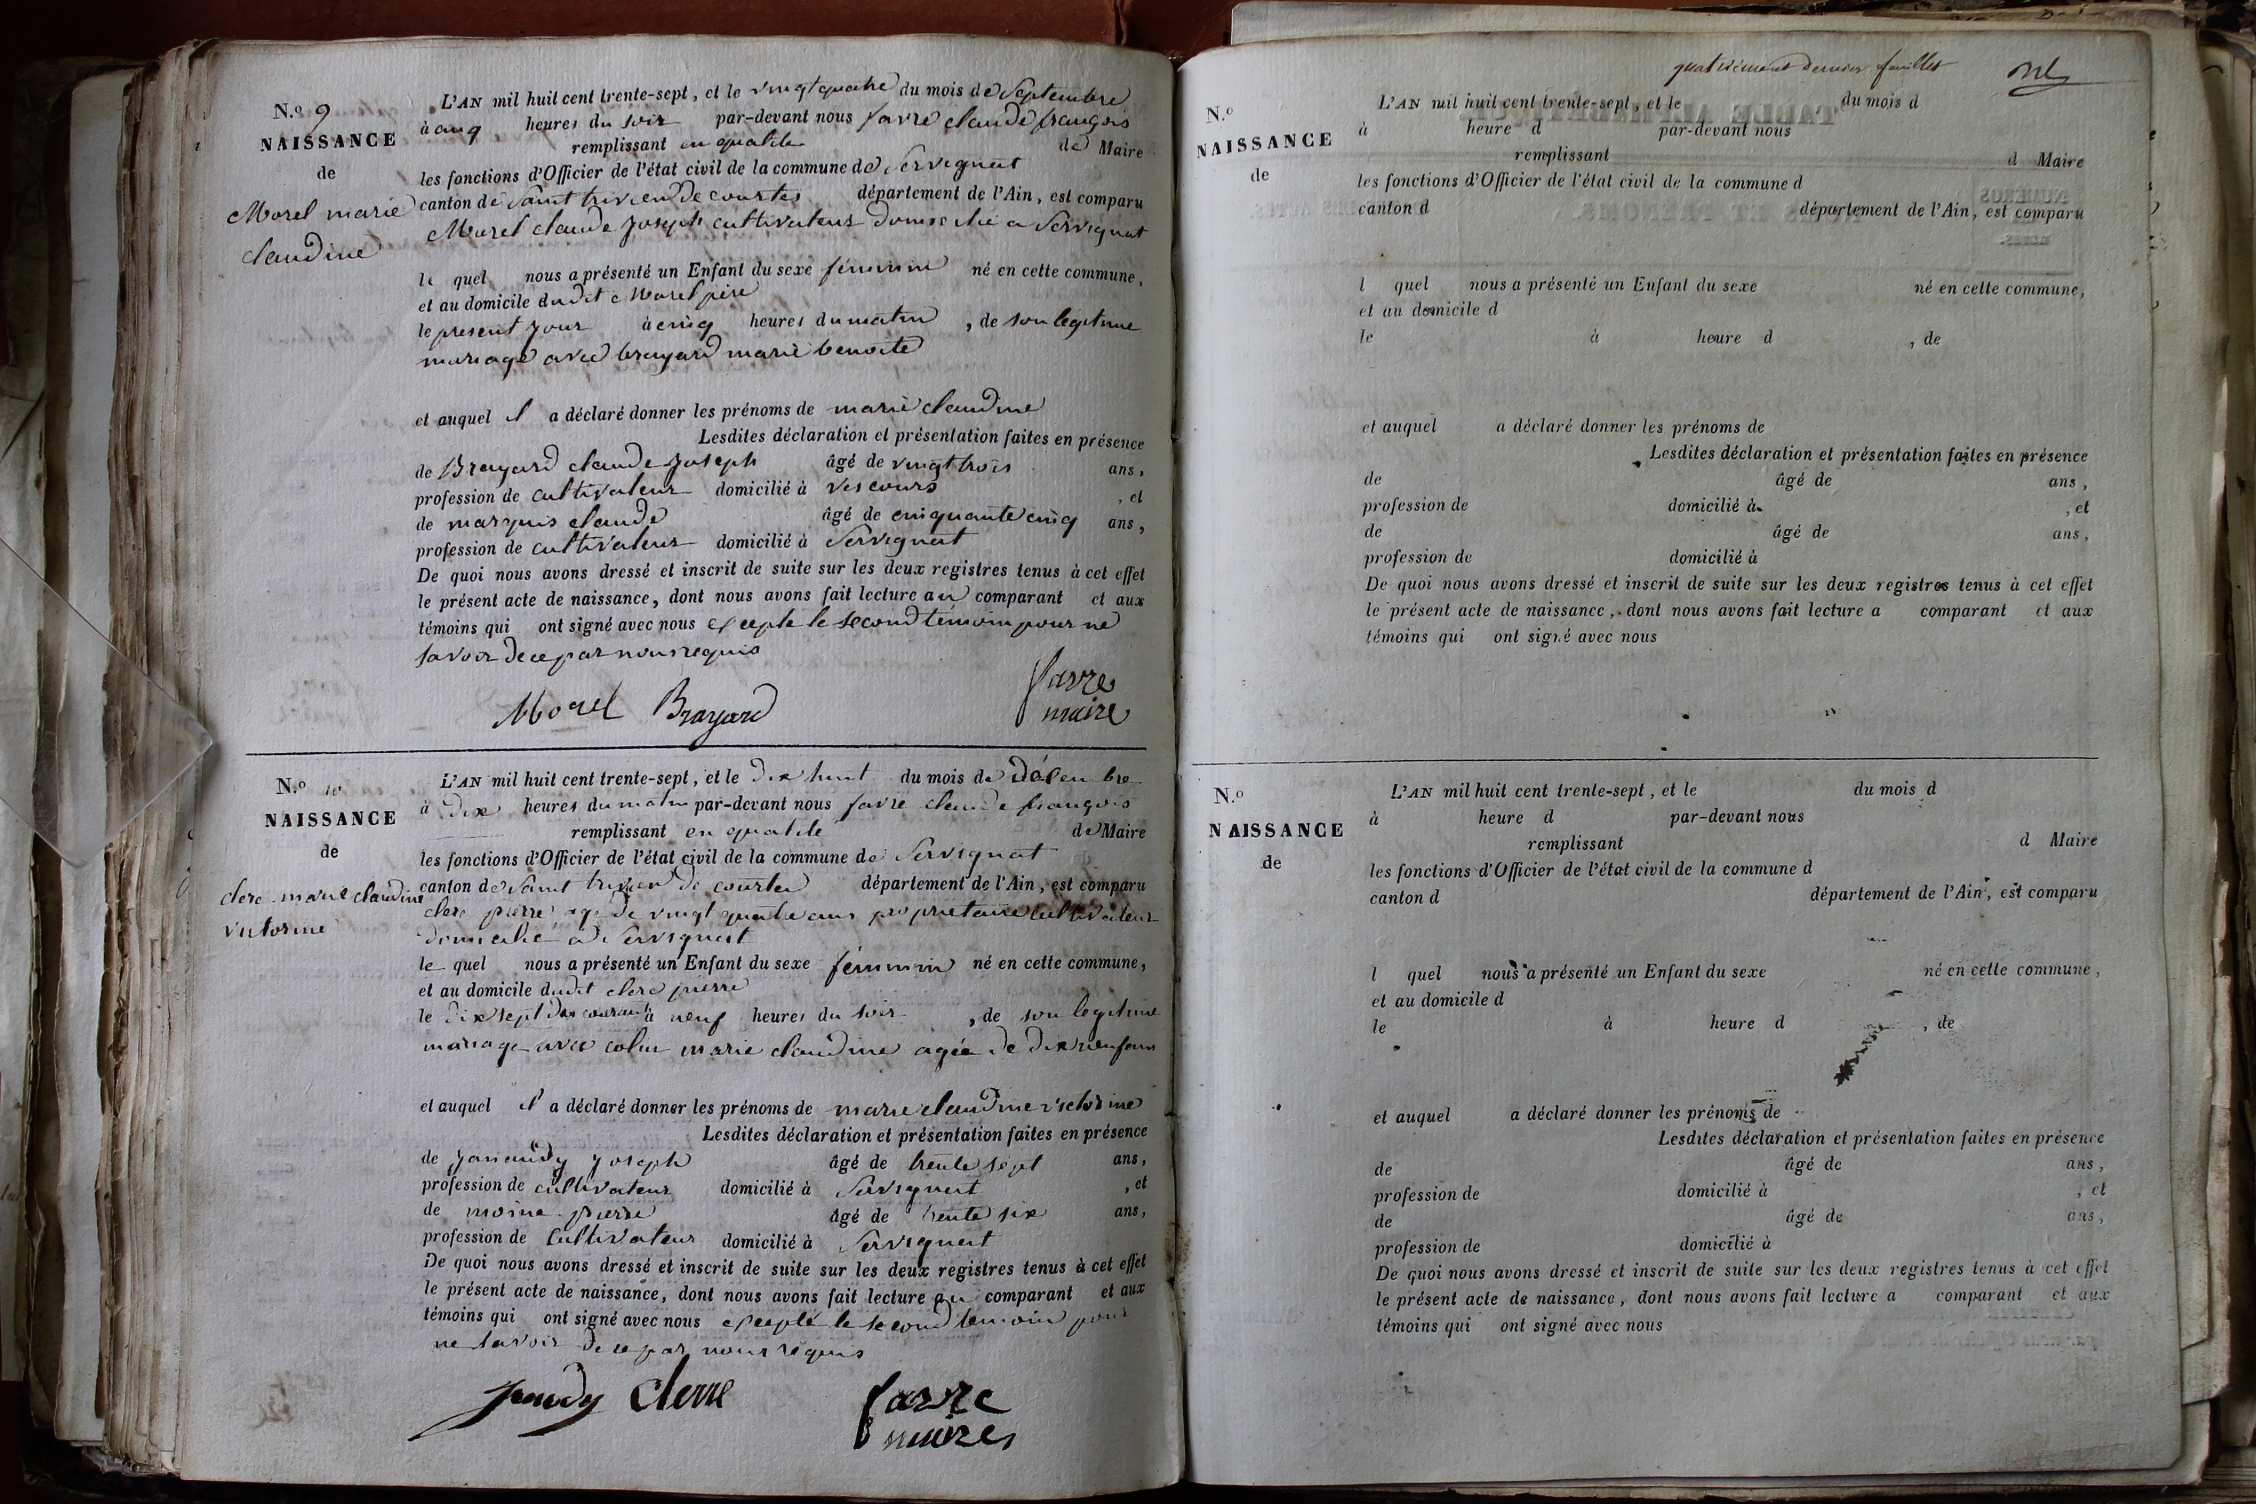 N.o 9
NAISSANCE
de
Morel marie
claudine
L'AN mil huit cent trente-sept, et le vingt quatre du mois de Septembre
à cinq heures du soir par-devant nous favre claude françois
remplissant en qualité de Maire
les fonctions d'Officier de l'état civil de la commune de Servignat
canton de Saint trivier de courtes département de l'Ain, est comparu
Morel claude Joseph cultivateur domicilié a Servignat
le quel nous a présenté un Enfant du sexe féminin né en cette commune,
et au domicile dudit Morel père
le présent jour à cinq heures du matin, de son legitime
mariage avec brayard marie benoite
et auquel il a déclaré donner les prénoms de marie claudine
Lesdites déclaration et présentation faites en présence
de Brayard claude Joseph âgé de vingt trois ans,
profession de cultivateur domicilié à vescours, et
de marquis claude âgé de cinquante cinq ans,
profession de cultivateur domicilié à Servignat
De quoi nous avons dressé et inscrit de suite sur les deux registres tenus à cet effet
le présent acte de naissance, dont nous avons fait lecture au comparant et aux
témoins qui ont signé avec nous excepté le second témoin pour ne
savoir de ce par nous requis
Morel Brayard favre
maire
N.o 10
NAISSANCE
de
clerc marie claudine
victorine
L'AN mil huit cent trente-sept, et le dix huit du mois de décembre
à dix heures du matin par-devant nous favre claude françois
remplissant en qualité de Maire
les fonctions d'Officier de l'état civil de la commune de Servignat
canton de Saint trivier de courtes département de l'Ain, est comparu
clerc pierre agé de vingt quatre ans propriétaire cultivateur
domicilié a Servignat
le quel nous a présenté un Enfant du sexe féminin né en cette commune,
et au domicile dudit clerc pierre
le dix sept du courant à neuf heures du soir, de son legitime
mariage avec marie claudine agée de dix neuf ans
et auquel il a déclaré donner les prénoms de marie claudine victorine
Lesdites déclaration et présentation faites en présence
de Joseph âgé de trente sept ans,
profession de cultivateur domicilié à Servignat, et
de moine pierre âgé de trente six ans,
profession de cultivateur domicilié à Servignat
De quoi nous avons dressé et inscrit de suite sur les deux registres tenus à cet effet
le présent acte de naissance, dont nous avons fait lecture au comparant et aux
témoins qui ont signé avec nous excepté le second temoin pour
ne savoir de ce par nous requis
favre
maire
quatrième et dernier feuillet
N.o
NAISSANCE
de
L'AN mil huit cent trente-sept, et le du mois d
à heure d par-devant nous
remplissant d Maire
les fonctions d'Officier de l'état civil de la commune d
canton d département de l'Ain, est comparu
l quel nous a présenté un Enfant du sexe né en cette commune,
et au domicile d
le à heure d , de
et auquel a déclaré donner les prénoms de
Lesdites déclaration et présentation faites en présence
de âgé de ans,
profession de domicilié à , et
de âgé de ans,
profession de domicilié à
De quoi nous avons dressé et inscrit de suite sur les deux registres tenus à cet effet
le présent acte de naissance, dont nous avons fait lecture a comparant et aux
témoins qui ont signé avec nous
N.o
NAISSANCE
de
L'AN mil huit cent trente-sept, et le du mois d
à heure d par-devant nous
remplissant d Maire
les fonctions d'Officier de l'état civil de la commune d
canton d département de l'Ain, est comparu
l quel nous a présenté un Enfant du sexe né en cette commune,
et au domicile d
le à heure d , de
et auquel a déclaré donner les prénoms de
Lesdites déclaration et présentation faites en présence
de âgé de ans,
profession de domicilié à , et
de âgé de ans,
profession de domicilié à
De quoi nous avons dressé et inscrit de suite sur les deux registres tenus à cet effet
le présent acte de naissance, dont nous avons fait lecture a comparant et aux
témoins qui ont signé avec nous